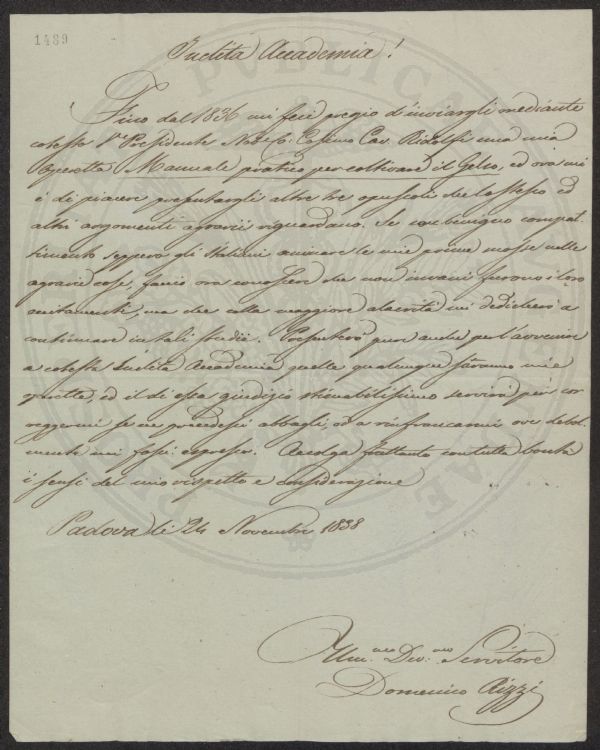 1489
Inclita Accademia!
Fino dal 1836 mi feci pregio d'inviargli mediante
cotesto Presidente Cosimo Cav. Ridolfi una mia
Operetta Manuale pratico per coltivare il Gelso, ed ora mi
è di piacere presentargli altre tre opuscoli che lo stesso ed
altri argomenti agrarii riguardano. Se con benigno compat-
timento seppero gli Italiani animare le mie prime mosse nelle
agrarie cose, ora conoscere che non invani furono i loro
eccitamenti, ma che colla maggiore alacrità mi dedicherò a
continuare in tali studii. Presenterò pure anche per l'avvenire
a cotesta Inclita Accademia quelle qualunque saranno mie
ed il di essa giudizio stimabilissimo servirà per cor-
reggermi se ne prendessi abbagli, od a rinfrancarmi ove debol-
mente mi fossi espresso. Accolga frattanto con tutta bontà
i sensi del mio rispetto e considerazione
Padova li 24 Novembre 1838
Um.mo Dev.mo Servitore
Domenico Rizzi
PUBLICAE